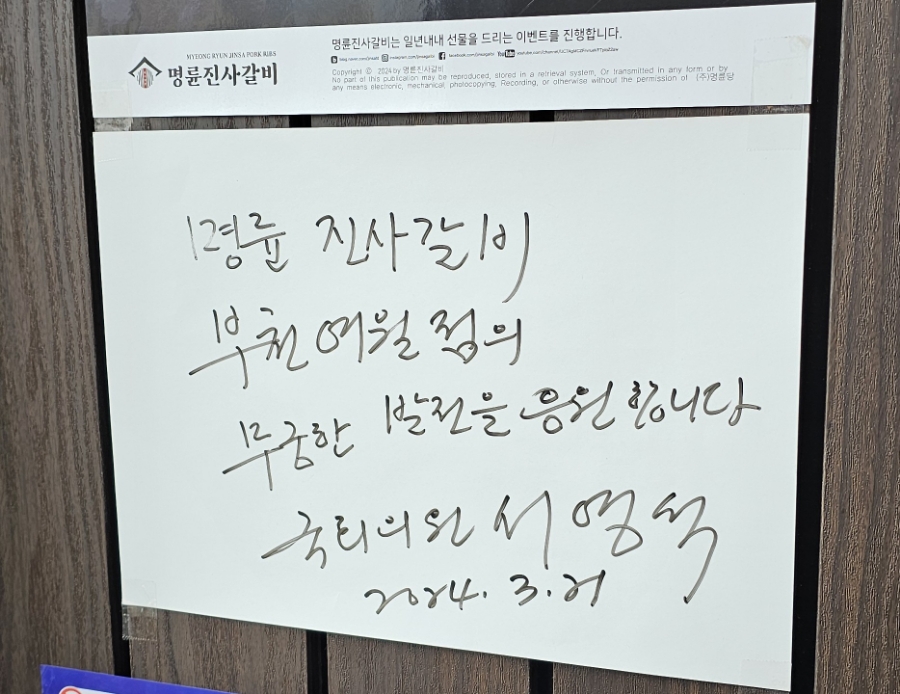 명륜진사갈비는 일년내내 선물을 드리는 이벤트를 진행합니다.
MYEONG RYUN JINSA PORK RIBS
명륜진사갈비
Copyright © 2024 by 명륜진사갈비
No part of this publication may be reproduced, stored in a retrieval system, Or transmitted in any form or by
any means electronic, mechanical, photocopying, Recording, or otherwise without the permission of (주)명륜당
명륜 진사갈비
부천여월점의
무궁한 발전을 응원합니다
국회의원 서영석
2024. 3. 21